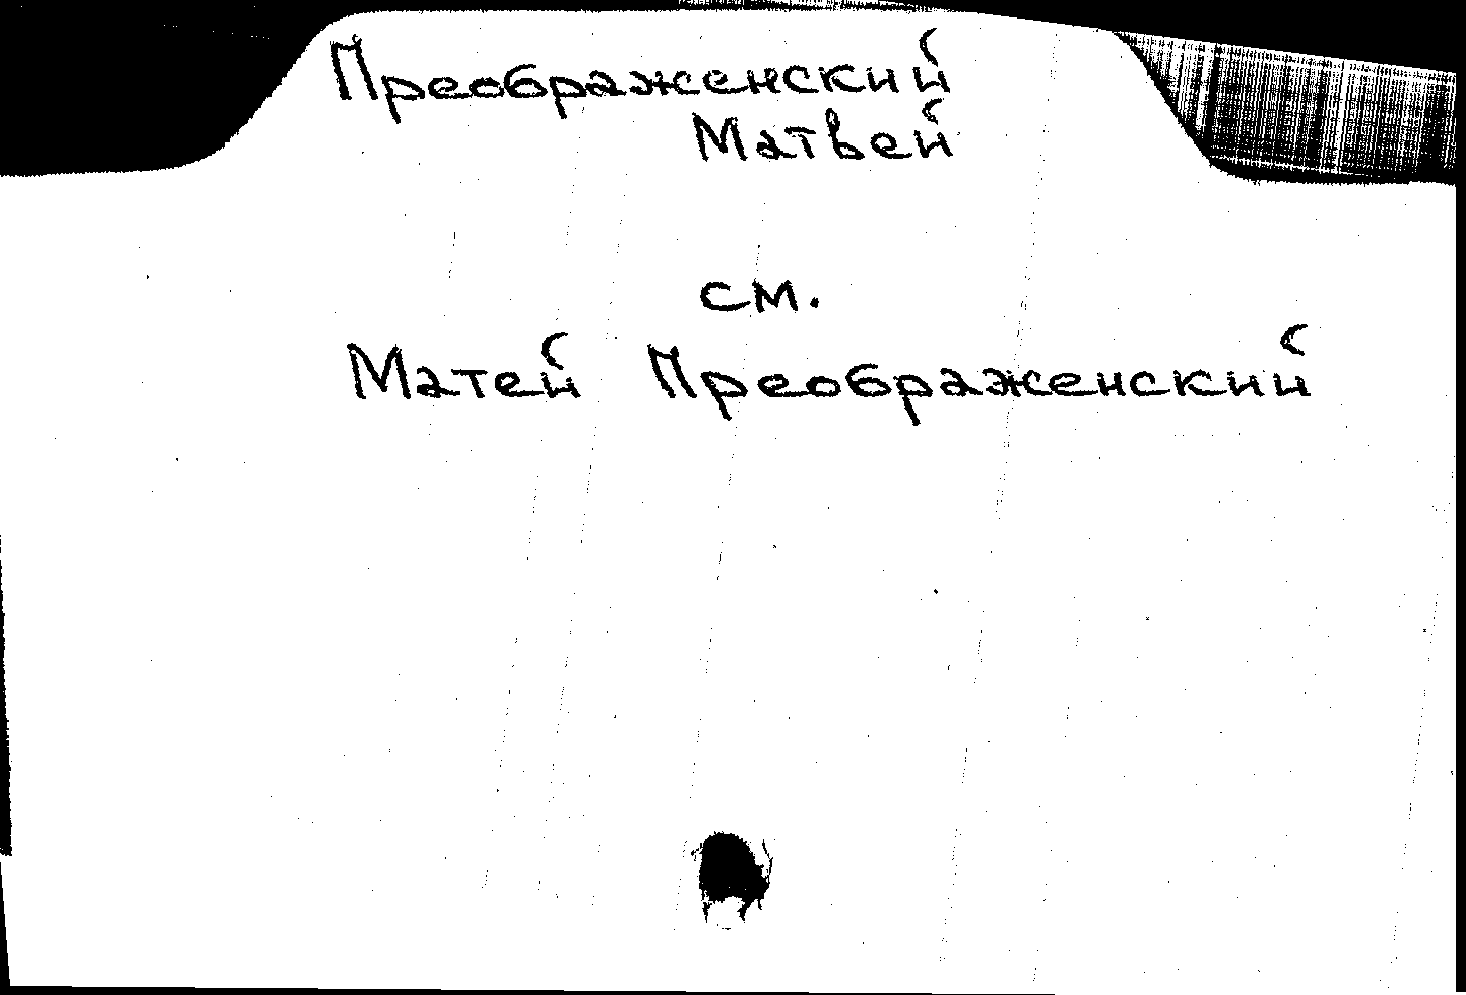 Преображенский
Матвей
см.
Матей Преображенский